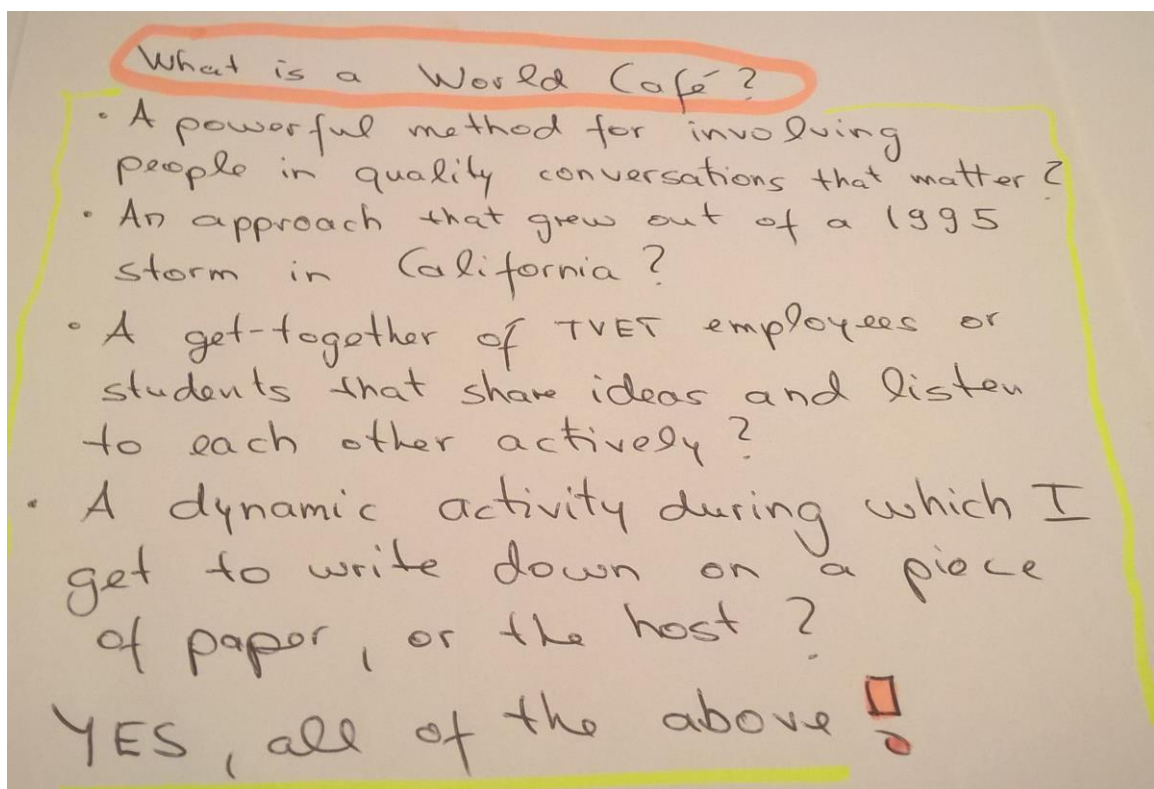 What is a World Café?
• A powerful method for involving
people in quality conversations that matter?
• An approach that grew out of a 1995
storm in California?
• A get-together of TVET employees or
students that share ideas and listen
to each other actively?
• A dynamic activity during which I
get to write down on a piece
of paper, or the host?
YES, all of the above!